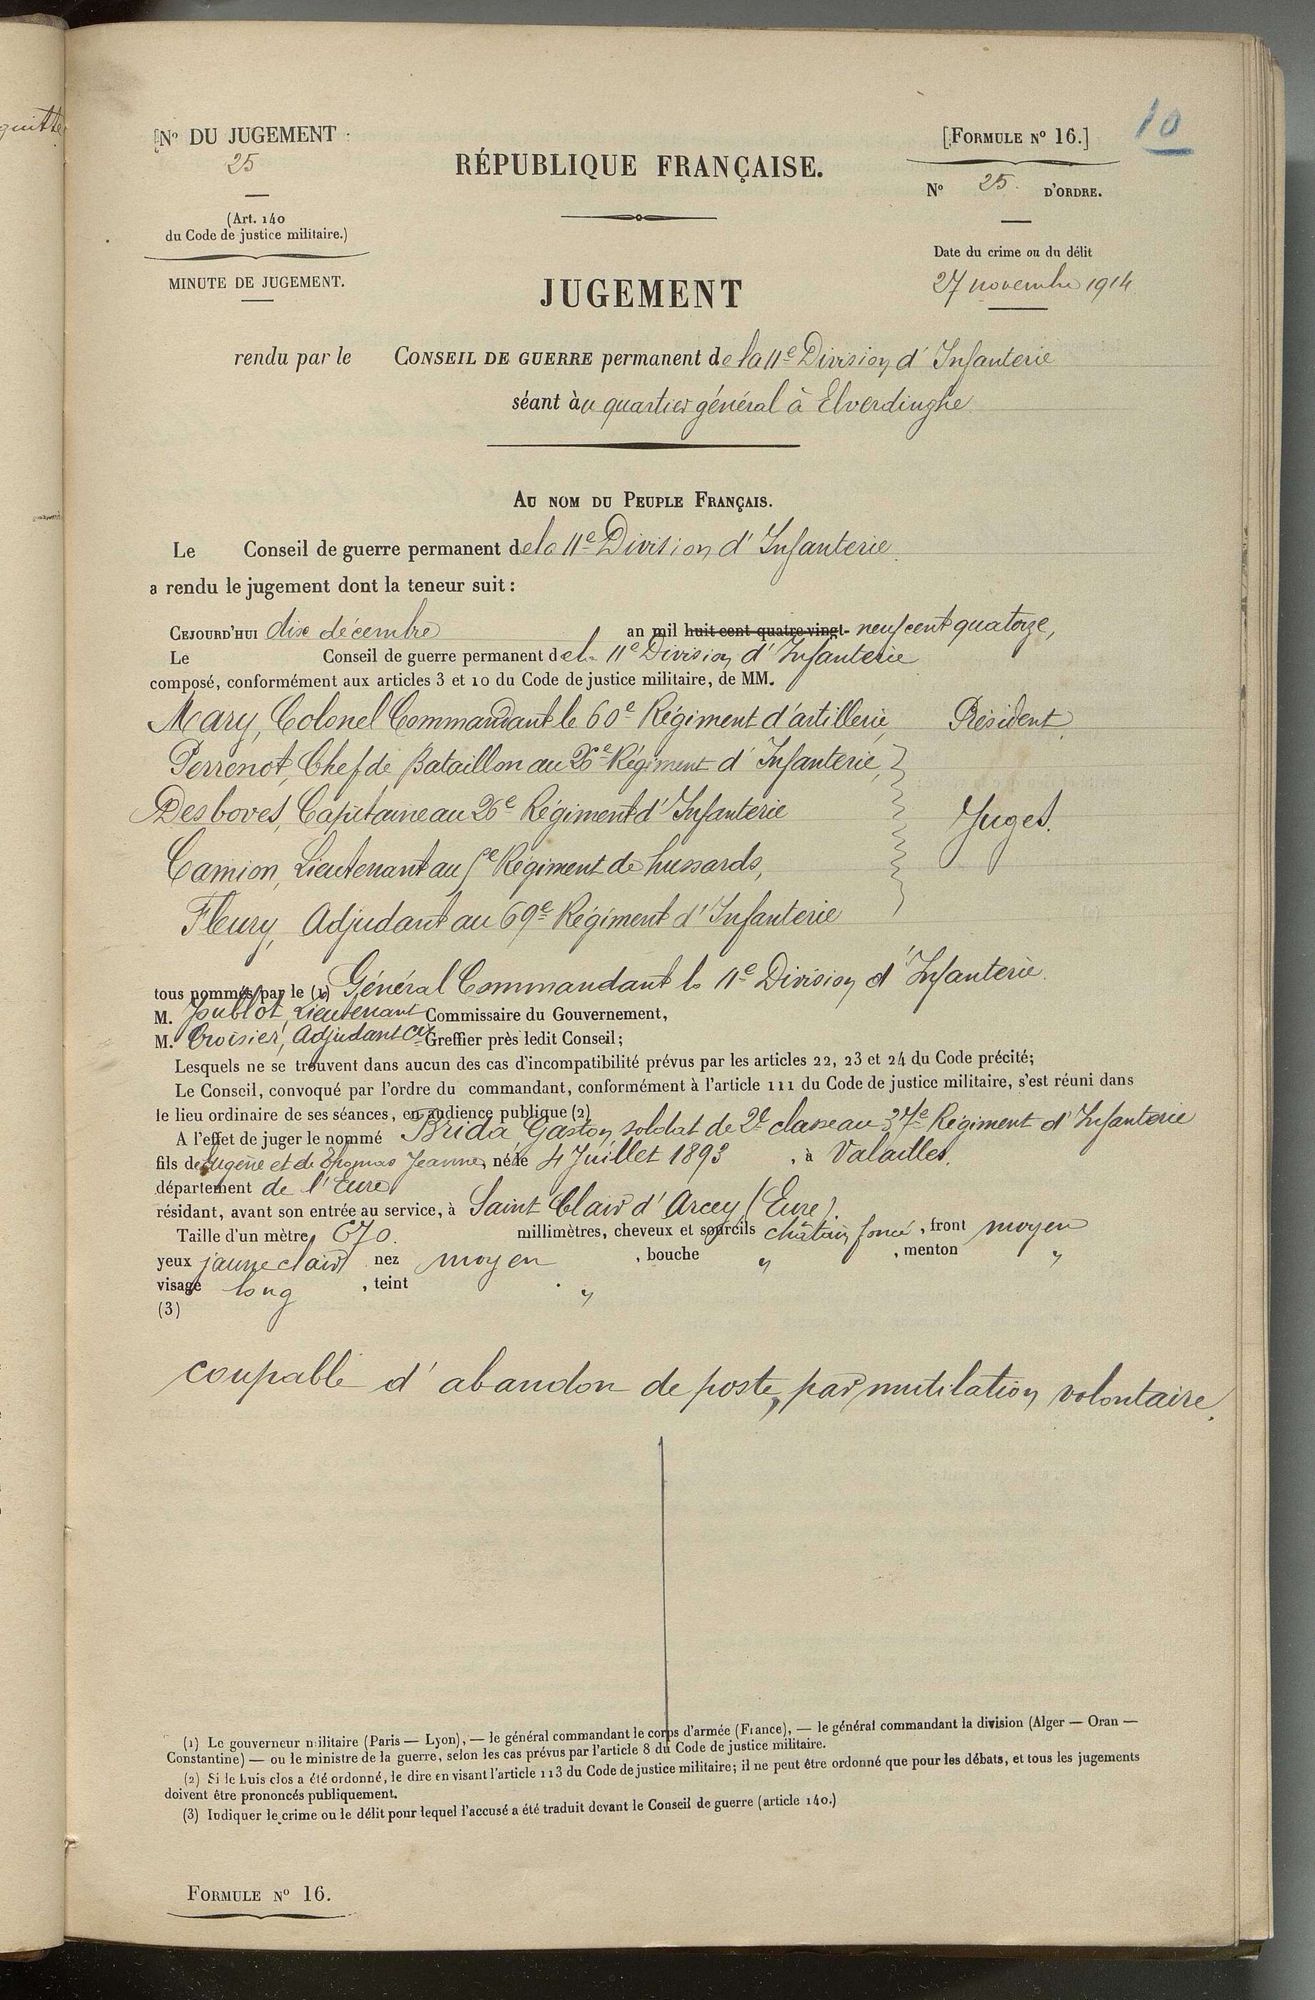 quitté
10
[N° DU JUGEMENT
25
(Art. 140
du Code de justice militaire.)
MINUTE DE JUGEMENT.
RÉPUBLIQUE FRANÇAISE.
[FORMULE N° 16.]
N° 25. D'ORDRE.
Date du crime ou du délit
27 novembre 1914
JUGEMENT
rendu par le CONSEIL DE GUERRE permanent de la 11e Division d'Infanterie
séant au quartier général à Elverdinghe
AU NOM DU PEUPLE FRANÇAIS.
Le Conseil de guerre permanent de la 11e Division d'Infanterie.
a rendu le jugement dont la teneur suit :
CEJOURD'HUI dix décembre an mil huit cent quatre-vingt- neuf cent quatorze,
Le Conseil de guerre permanent de la 11e Division d'Infanterie
composé, conformément aux articles 3 et 10 du Code de justice militaire, de MM.
Mary, Colonel Commandant le 60e Régiment d'artillerie, Président.
Perrenot, Chef de Bataillon au 26e Régiment d'Infanterie,
Desboves, Capitaine au 26e Régiment d'Infanterie Juges.
Camion, Lieutenant au 5e Régiment de hussards,
Fleury, Adjudant au 69e Régiment d'Infanterie
tous nommés par le (1) Général Commandant la 11e Division d'Infanterie.
M. Joublot, Lieutenant Commissaire du Gouvernement,
M. Croisier, Adjudant Greffier près ledit Conseil ;
Lesquels ne se trouvent dans aucun des cas d'incompatibilité prévus par les articles 22, 23 et 24 du Code précité ;
Le Conseil, convoqué par l'ordre du commandant, conformément à l'article 111 du Code de justice militaire, s'est réuni dans
le lieu ordinaire de ses séances, en audience publique (2)
A l'effet de juger le nommé Brida Gaston, soldat de 2e classe au 37e Régiment d'Infanterie
fils de Eugène et de Thomas Jeanne, né le 4 Juillet 1893, à Valailles,
département de l'Eure
résidant, avant son entrée au service, à Saint Clair d'Arcey (Eure).
Taille d'un mètre 670. millimètres, cheveux et sourcils châtain foncé, front moyen
yeux jaune clair nez moyen, bouche ", menton "
visage long, teint "
(3)
coupable d'abandon de poste, par mutilation volontaire.
(1) Le gouverneur militaire (Paris — Lyon), — le général commandant le corps d'armée (France), — le général commandant la division (Alger — Oran —
Constantine) — ou le ministre de la guerre, selon les cas prévus par l'article 8 du Code de justice militaire.
(2) Si le huis clos a été ordonné, le dire en visant l'article 113 du Code de justice militaire ; il ne peut être ordonné que pour les débats, et tous les jugements
doivent être prononcés publiquement.
(3) Indiquer le crime ou le délit pour lequel l'accusé a été traduit devant le Conseil de guerre (article 140.)
FORMULE N° 16.